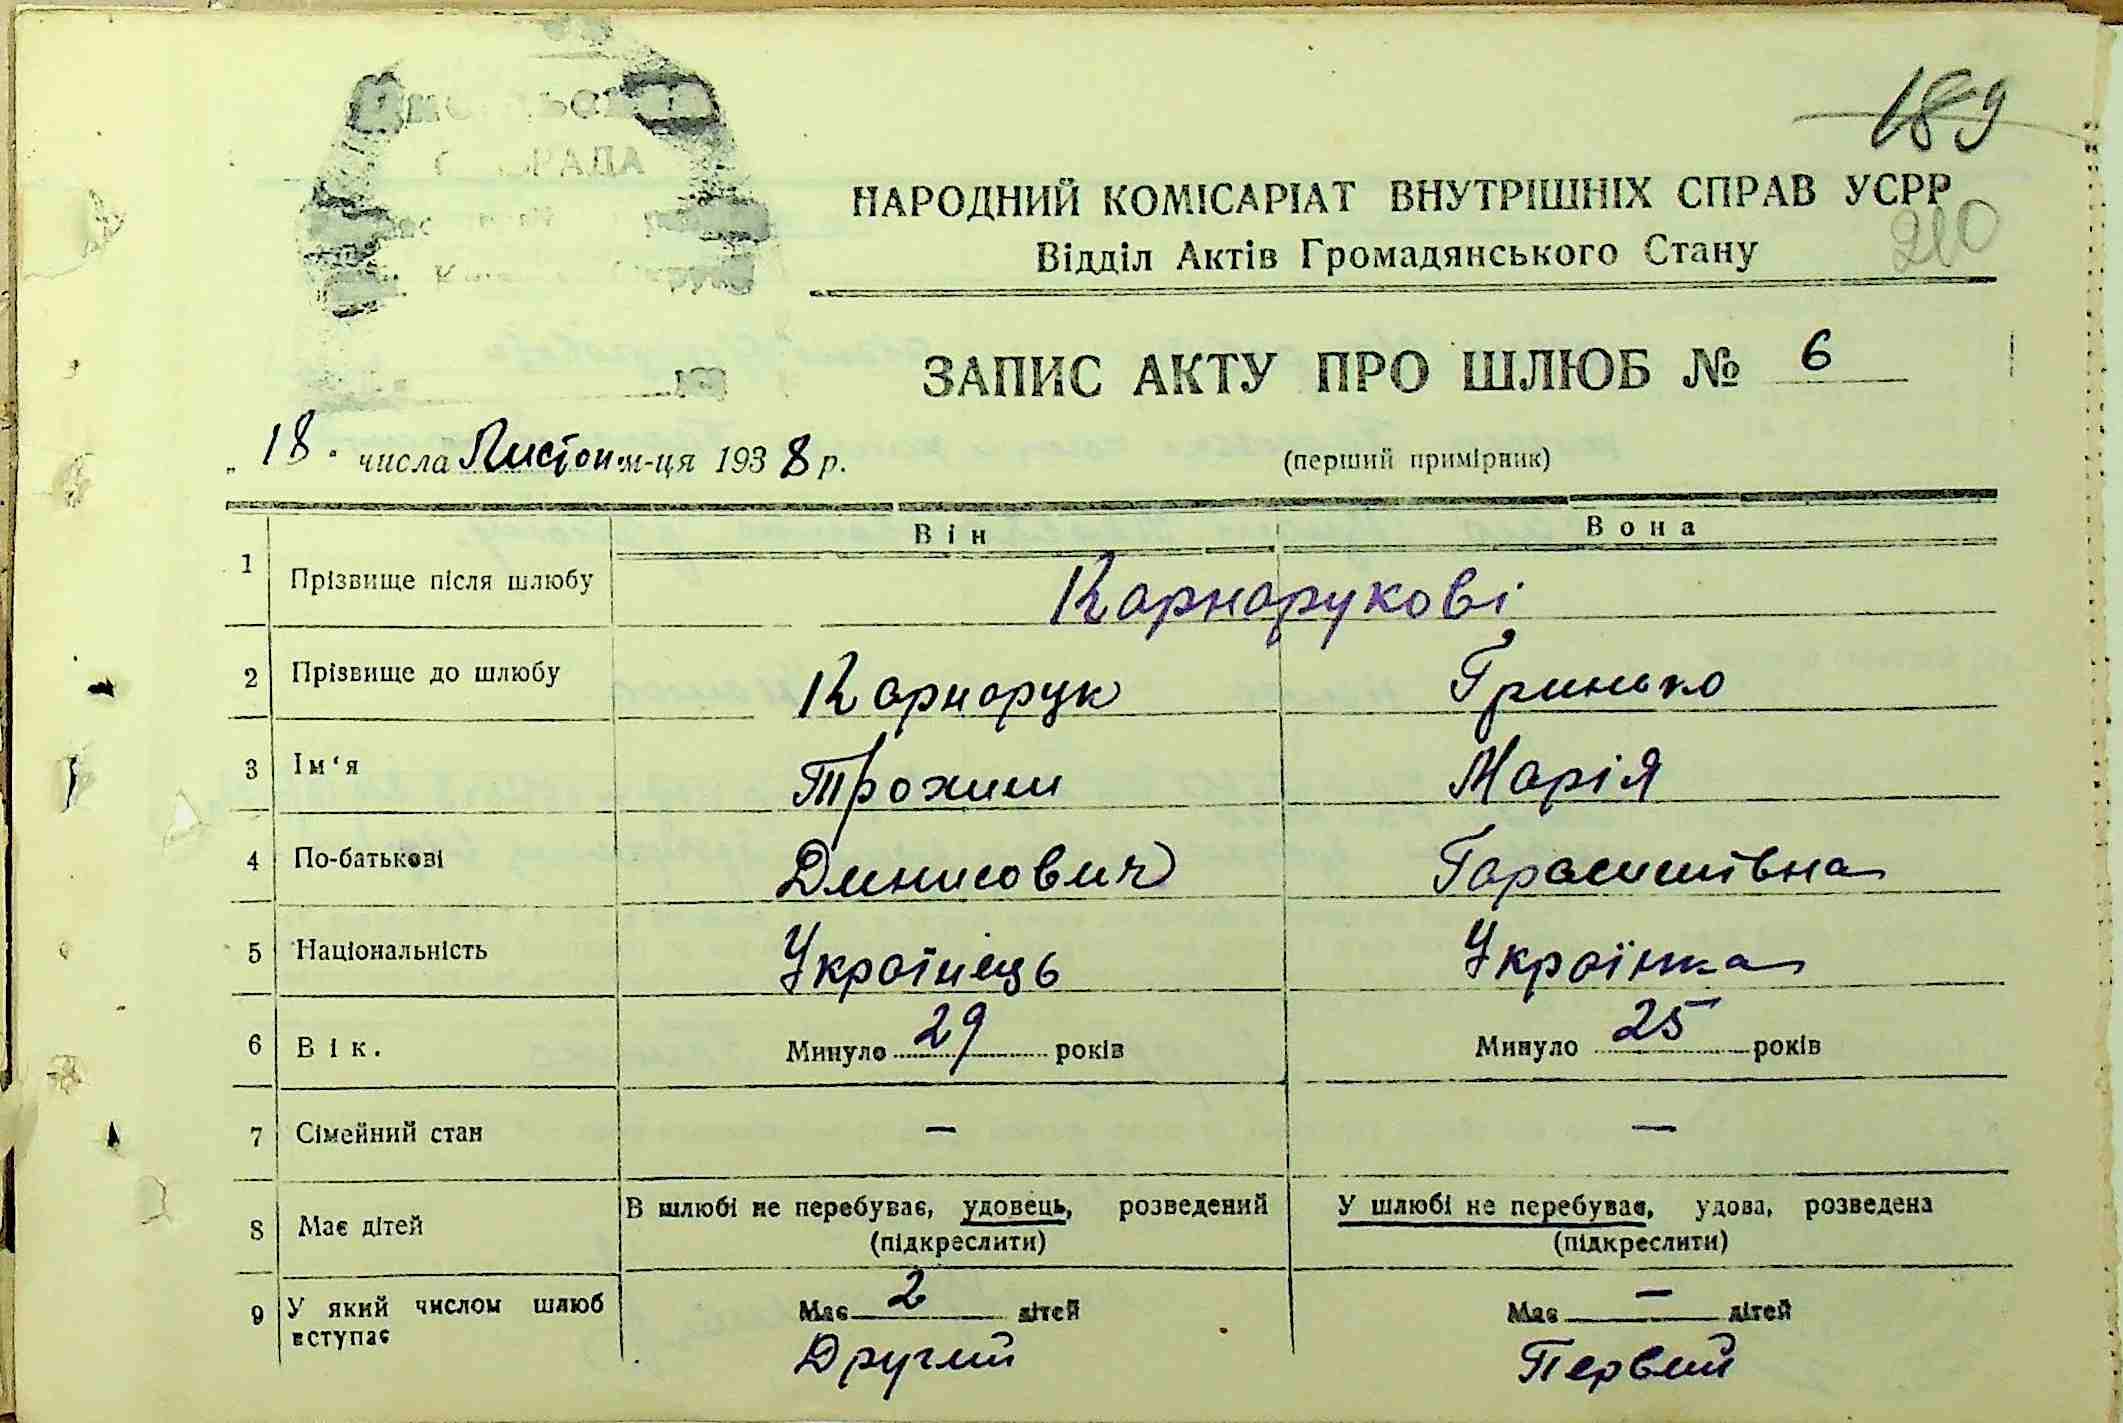 189
НАРОДНИЙ КОМІСАРІАТ ВНУТРІШНІХ СПРАВ УСРР
210
Відділ Актів Громадянського Стану
ЗАПИС АКТУ ПРО ШЛЮБ № 6
„ 18 " числа Листоп м-ця 1938 р.
(перший примірник)
Він Вона
1 Прізвище після шлюбу Карнарукові
2 Прізвище до шлюбу Карнарук Гринько
3 Ім‘я Трохим Марія
4 По-батькові Динисович Гарасимівна
5 Національність Українець Українка
6 Вік. Минуло 29 років Минуло 25 років
7 Сімейний стан — —
8 Має дітей В шлюбі не перебуває, удовець, розведений У шлюбі не перебуває, удова, розведена
(підкреслити) (підкреслити)
9 У який числом шлюб вступає Має 2 дітей Має — дітей
Другий Первий